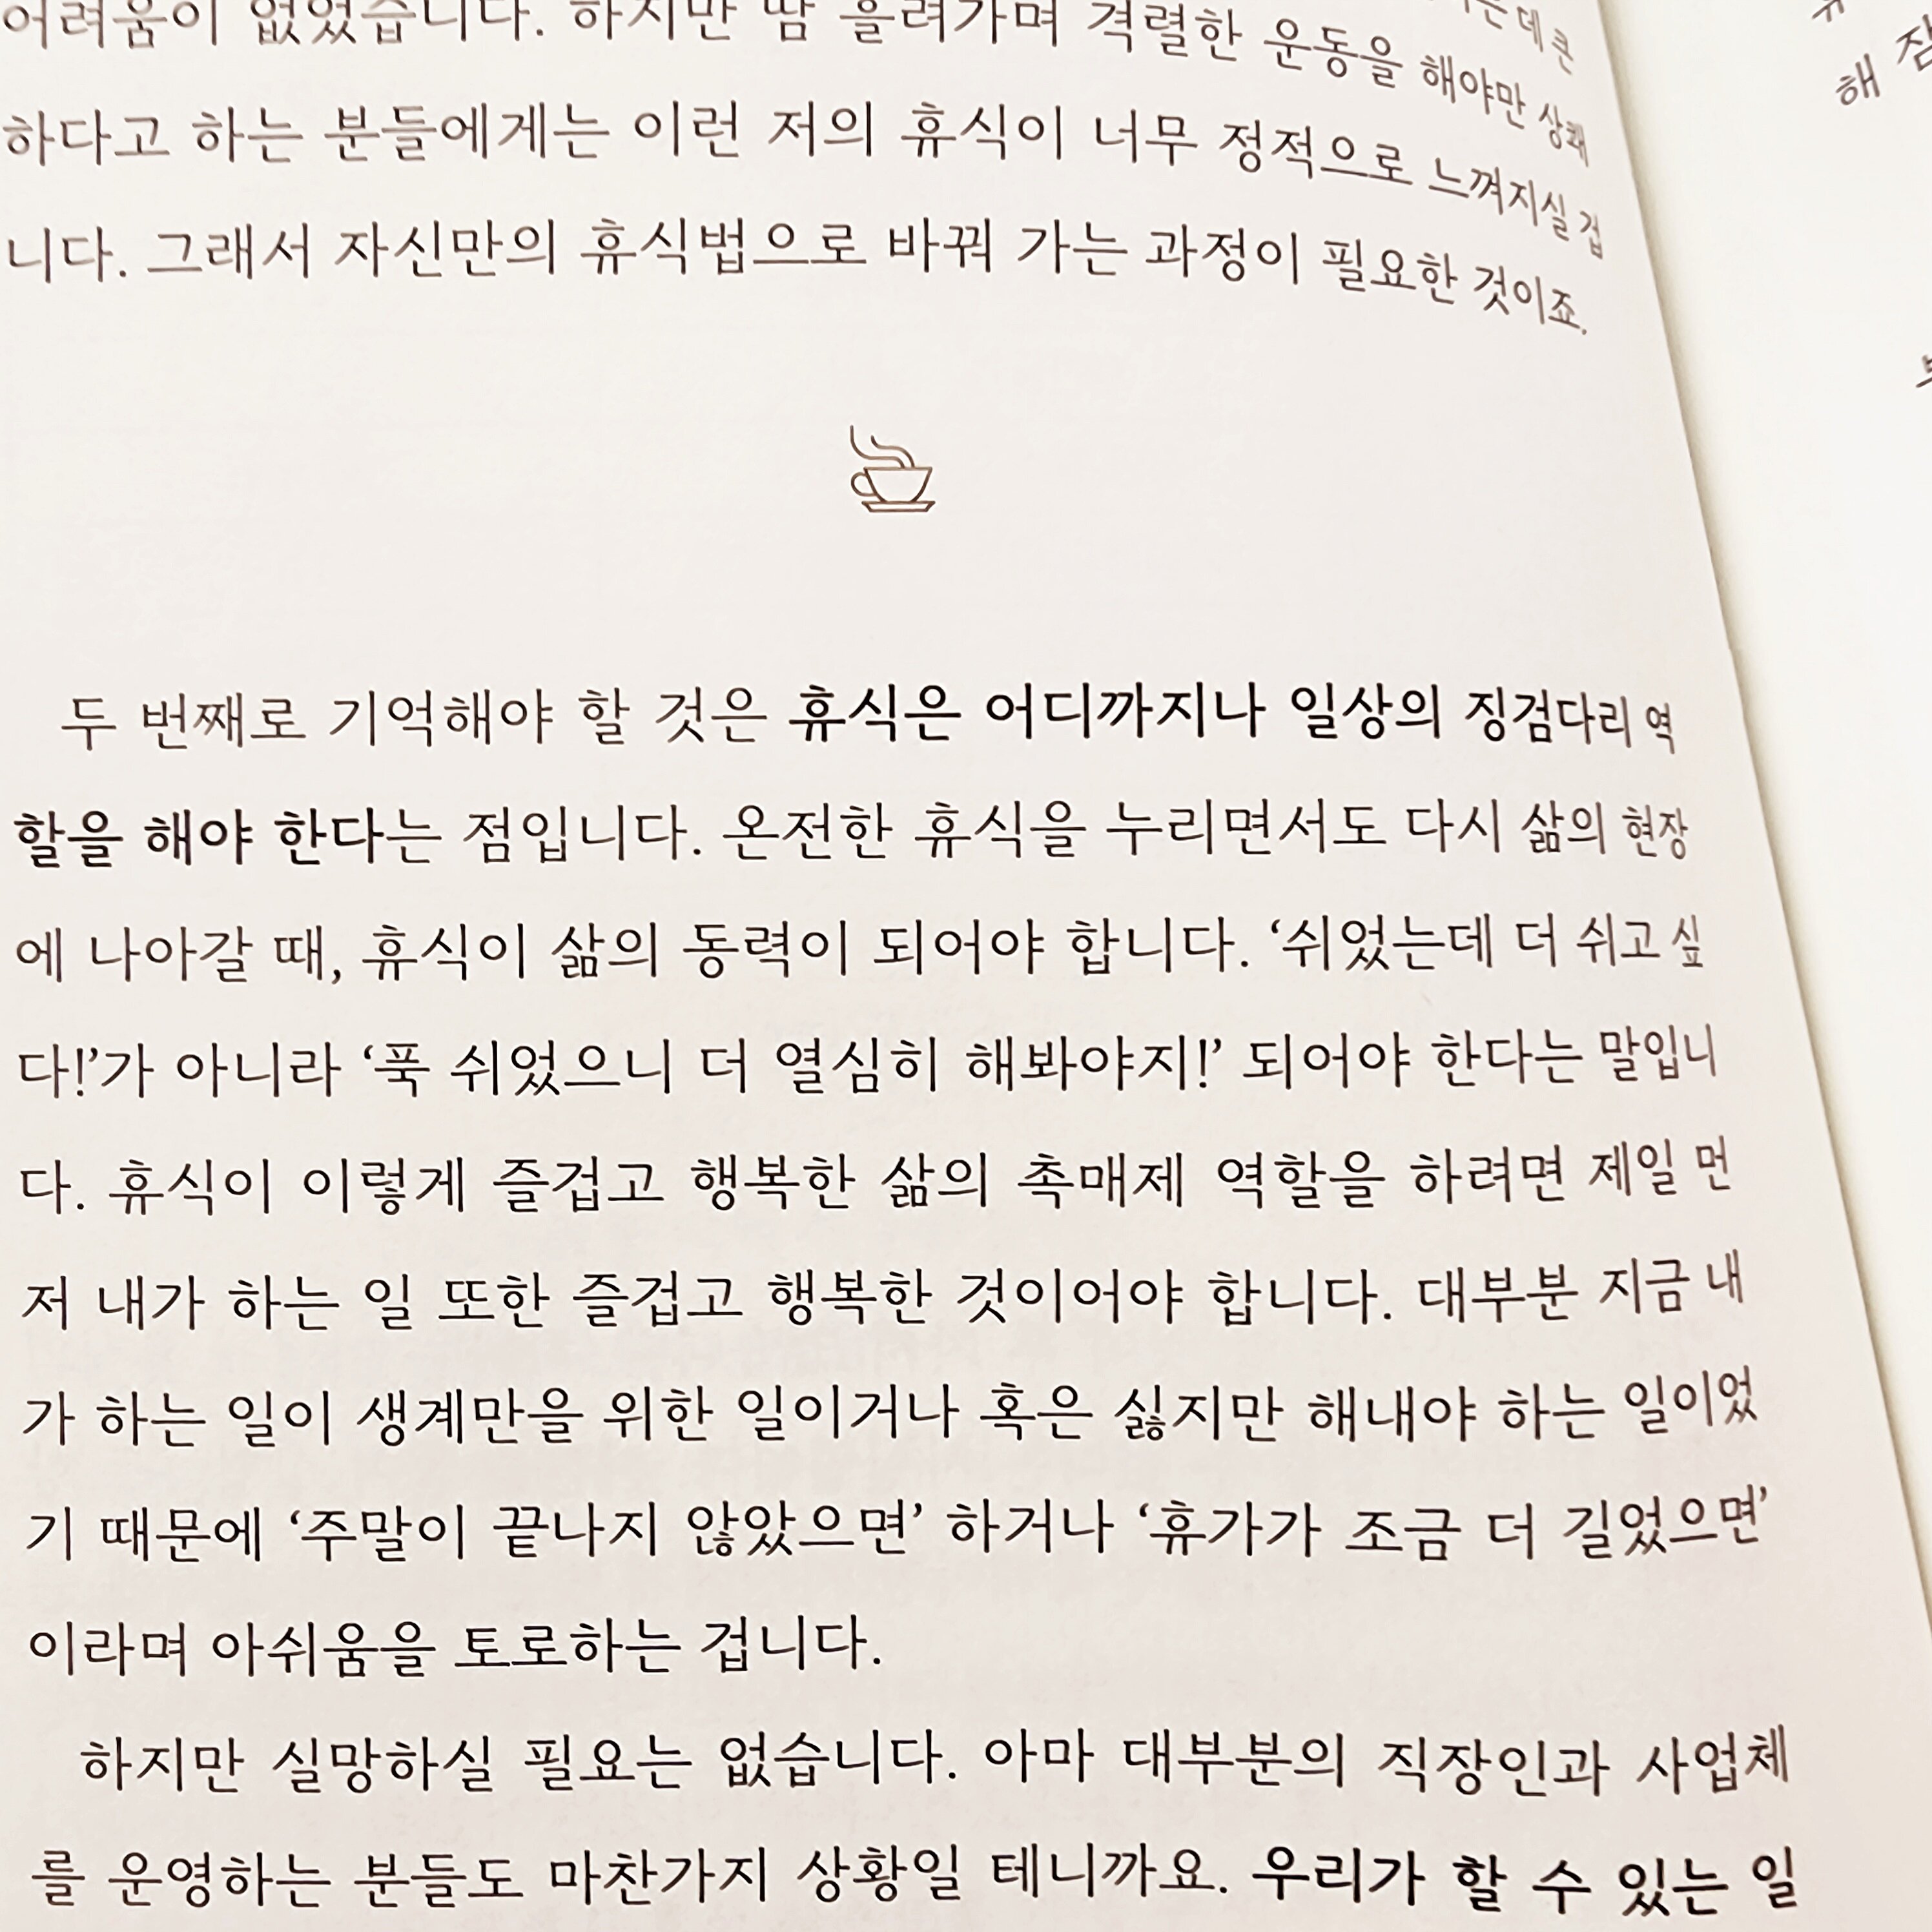 어려움이 없었습니다. 하지만 땀 흘려가며 격렬한 운동을 해야만 상쾌
하다고 하는 분들에게는 이런 저의 휴식이 너무 정적으로 느껴지실 겁
니다. 그래서 자신만의 휴식법으로 바꿔 가는 과정이 필요한 것이죠.
두 번째로 기억해야 할 것은 휴식은 어디까지나 일상의 징검다리 역
할을 해야 한다는 점입니다. 온전한 휴식을 누리면서도 다시 삶의 현장
에 나아갈 때, 휴식이 삶의 동력이 되어야 합니다. ‘쉬었는데 더 쉬고 싶
다!’가 아니라 ‘푹 쉬었으니 더 열심히 해봐야지!’ 되어야 한다는 말입니
다. 휴식이 이렇게 즐겁고 행복한 삶의 촉매제 역할을 하려면 제일 먼
저 내가 하는 일 또한 즐겁고 행복한 것이어야 합니다. 대부분 지금 내
가 하는 일이 생계만을 위한 일이거나 혹은 싫지만 해내야 하는 일이었
기 때문에 ‘주말이 끝나지 않았으면’ 하거나 ‘휴가가 조금 더 길었으면’
이라며 아쉬움을 토로하는 겁니다.
하지만 실망하실 필요는 없습니다. 아마 대부분의 직장인과 사업체
를 운영하는 분들도 마찬가지 상황일 테니까요. 우리가 할 수 있는 일
해